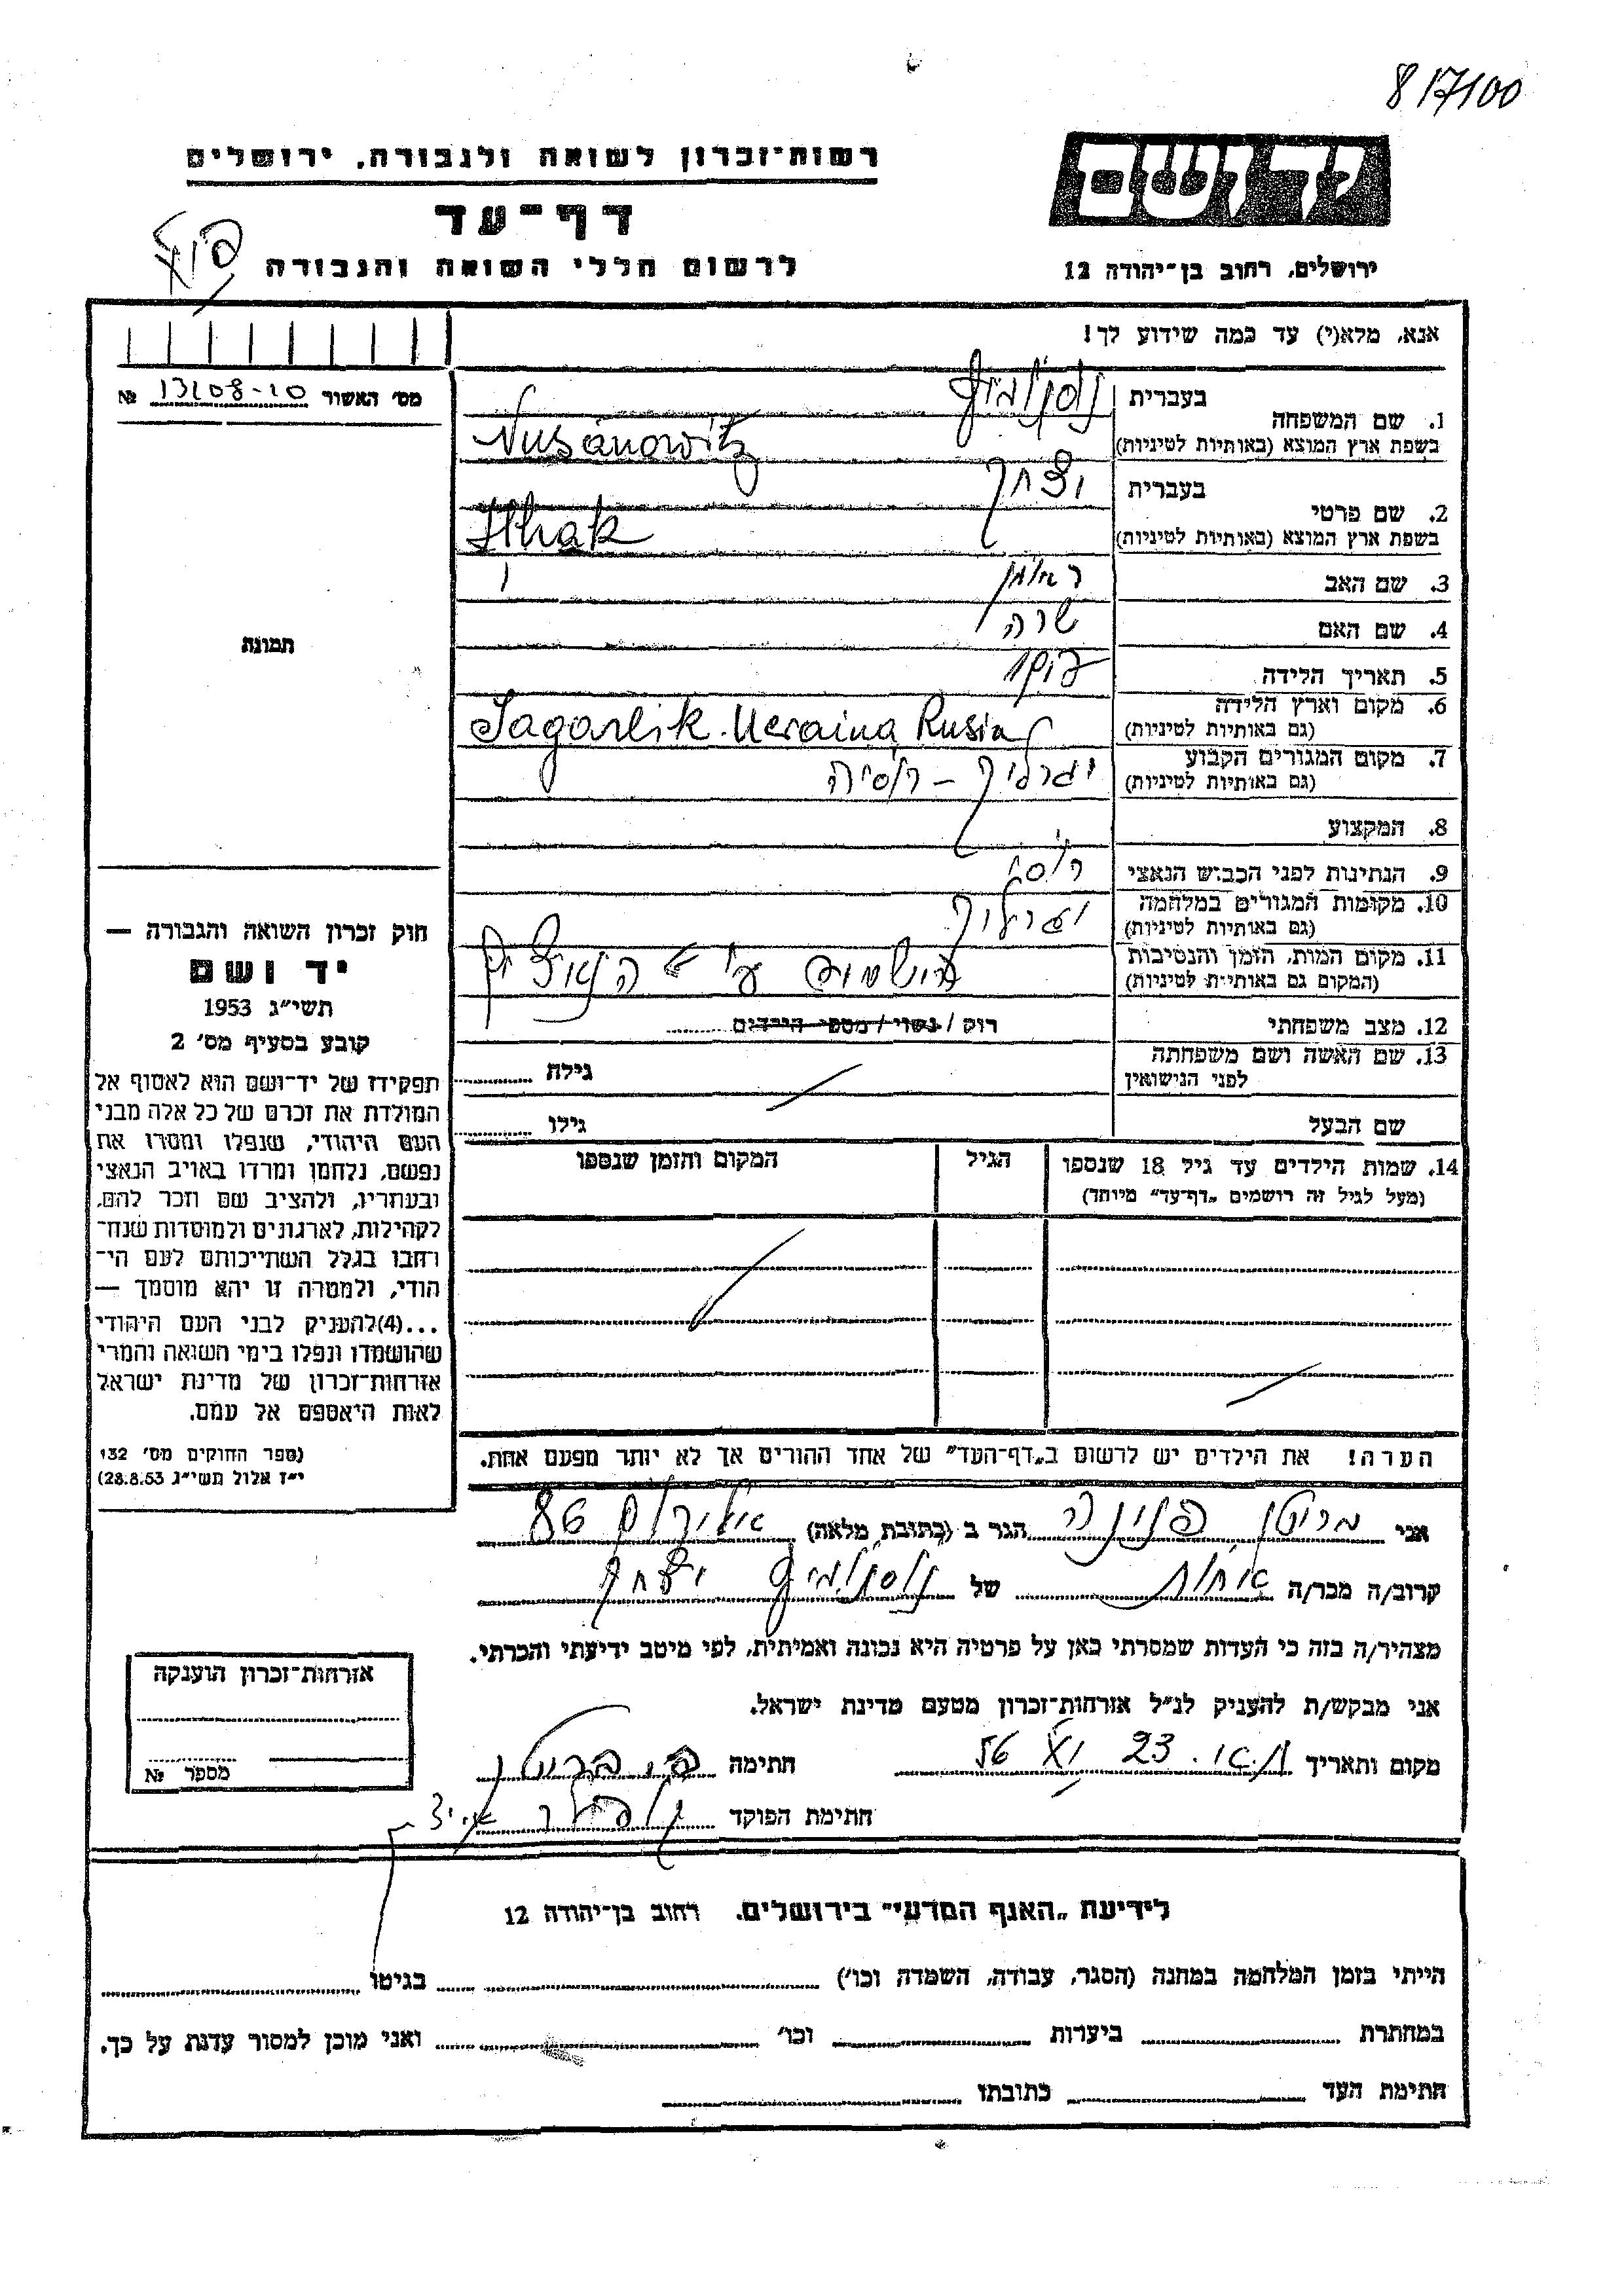 817100
רשות־זכרון לשואה ולגבורה, ירושלים
יד ושם
דף־עד
לרשום חללי השואה והגבורה
ירושלים, רחוב בן־יהודה 12
אנא, מלא(י) עד כמה שידוע לך!
מס' האשור 13108-10 №
תמונה
1. שם המשפחה
בעברית
בשפת ארץ המוצא (באותיות לטיניות) Nusanowitz
2. שם פרטי
בעברית יצחק
בשפת ארץ המוצא (באותיות לטיניות) Ithak
3. שם האב ראובן
4. שם האם שרה
5. תאריך הלידה
6. מקום וארץ הלידה
(גם באותיות לטיניות) Jagarlik. Ucraina Rusia
7. מקום המגורים הקבוע
(גם באותיות לטיניות) יגרליק – רוסיה
8. המקצוע
9. הנתינות לפני הכבוש הנאצי רוסית
10. מקומות המגורים במלחמה
(גם באותיות לטיניות) יגרליק
11. מקום המות, הזמן והנסיבות
(המקום גם באותיות לטיניות) ע"י הנאצים
12. מצב משפחתי רוק / נשוי / מספר הילדים
13. שם האשה ושם משפחתה
לפני הנישואין גילה
שם הבעל גילו
14. שמות הילדים עד גיל 18 שנספו הגיל המקום והזמן שנספו
(מעל לגיל זה רושמים „דף־עד" מיוחד)
הערה! את הילדים יש לרשום ב„דף־העד" של אחד ההורים אך לא יותר מפעם אחת.
חוק זכרון השואה והגבורה —
יד ושם
תשי"ג 1953
קובע בסעיף מס' 2
תפקידו של יד־ושם הוא לאסוף אל
המולדת את זכרם של כל אלה מבני
העם היהודי, שנפלו ומסרו את
נפשם, נלחמו ומרדו באויב הנאצי
ובעוזריו, ולהציב שם וזכר להם,
לקהילות, לארגונים ולמוסדות שנח־
רחבו בגלל השתייכותם לעם הי־
הודי, ולמטרה זו יהא מוסמך —
...(4)להעניק לבני העם היהודי
שהושמדו ונפלו בימי השואה והמרי
אזרחות־זכרון של מדינת ישראל
לאות היאספם אל עמם.
(ספר החוקים מס' 132
י"ז אלול תשי"ג 28.8.53)
אני פנינה הגר ב (כתובת מלאה) 86
קרוב/ה מכר/ה אחות של יצחק
מצהיר/ה בזה כי העדות שמסרתי כאן על פרטיה היא נכונה ואמיתית, לפי מיטב ידיעתי והכרתי.
אני מבקש/ת להעניק לנ"ל אזרחות־זכרון מטעם מדינת ישראל.
מקום ותאריך ת"א. 23 56 חתימה
חתימת הפוקד
אזרחות־זכרון הוענקה
מספר №
לידיעת „האגף המדעי" בירושלים. רחוב בן־יהודה 12
הייתי בזמן המלחמה במחנה (הסגר, עבודה, השמדה וכו') בגיטו
במחתרת ביערות וכו' ואני מוכן למסור עדות על כך.
חתימת העד כתובתו